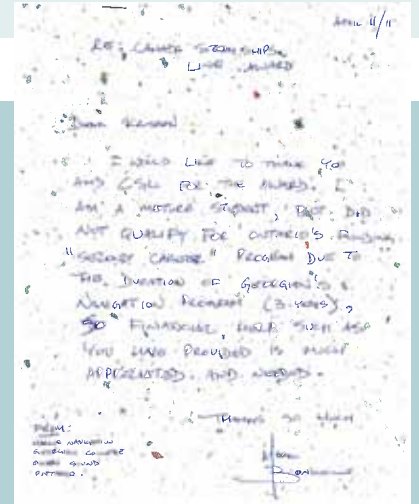 APRIL 11/11
RE: CANADA STEAMSHIP
LINE AWARD
DEAR
I WOULD LIKE TO THANK YO
AND CSL FOR THE AWARD. I
AM A MATURE STUDENT, BUT DID
NOT QUALIFY FOR ONTARIO'S FUNDING
"SECOND CAREER" PROGRAM DUE TO
THE DURATION OF GEORGIAN'S
NAVIGATION PROGRAM (3-YEARS),
SO FINANCIAL HELP SUCH AS
YOU HAVE PROVIDED IS MUCH
APPRECIATED AND NEEDED.
THANKS SO MUCH
FROM:
NAVIGATION
GEORGIAN COLLEGE
OWEN SOUND
ONTARIO.